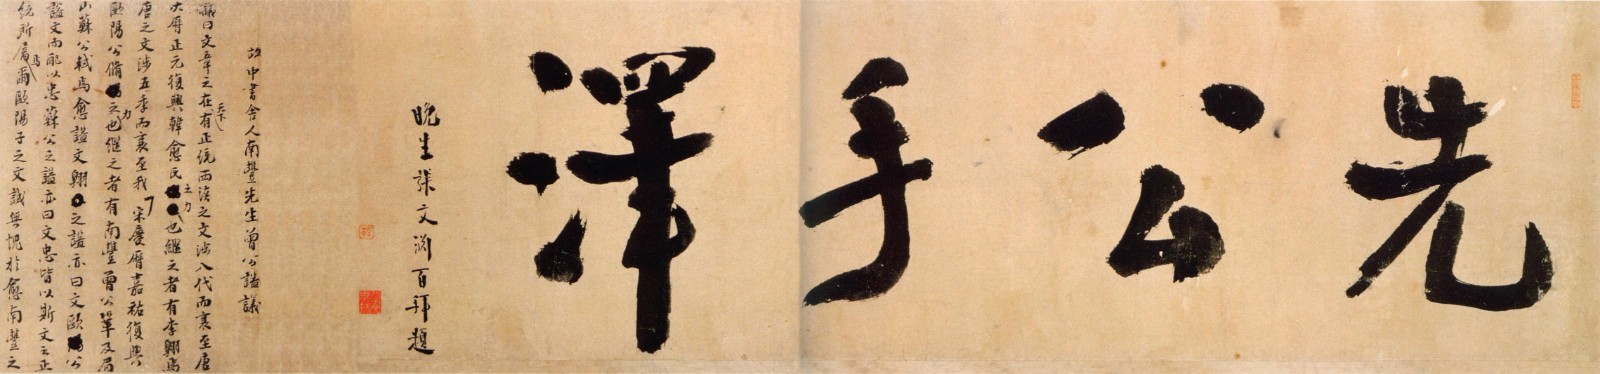 先公手澤
晚生張文淵百拜題
故中書舍人南豐先生曾公謚議
議曰文章之在天下有正統西漢之文涉八代而衰至唐
大曆正元復興韓愈氏之力也繼之者有李翱焉
唐之文涉五季而衰至我宋慶曆嘉祐復興
歐陽公脩之力也繼之者有南豐曾公鞏及眉
山蘇公軾焉愈謚文翱之謚亦曰文歐公
謚文而配以忠蘇公之謚亦曰文忠皆以斯文之正
統所屬焉爾歐陽子之文誠無愧於愈南豐之